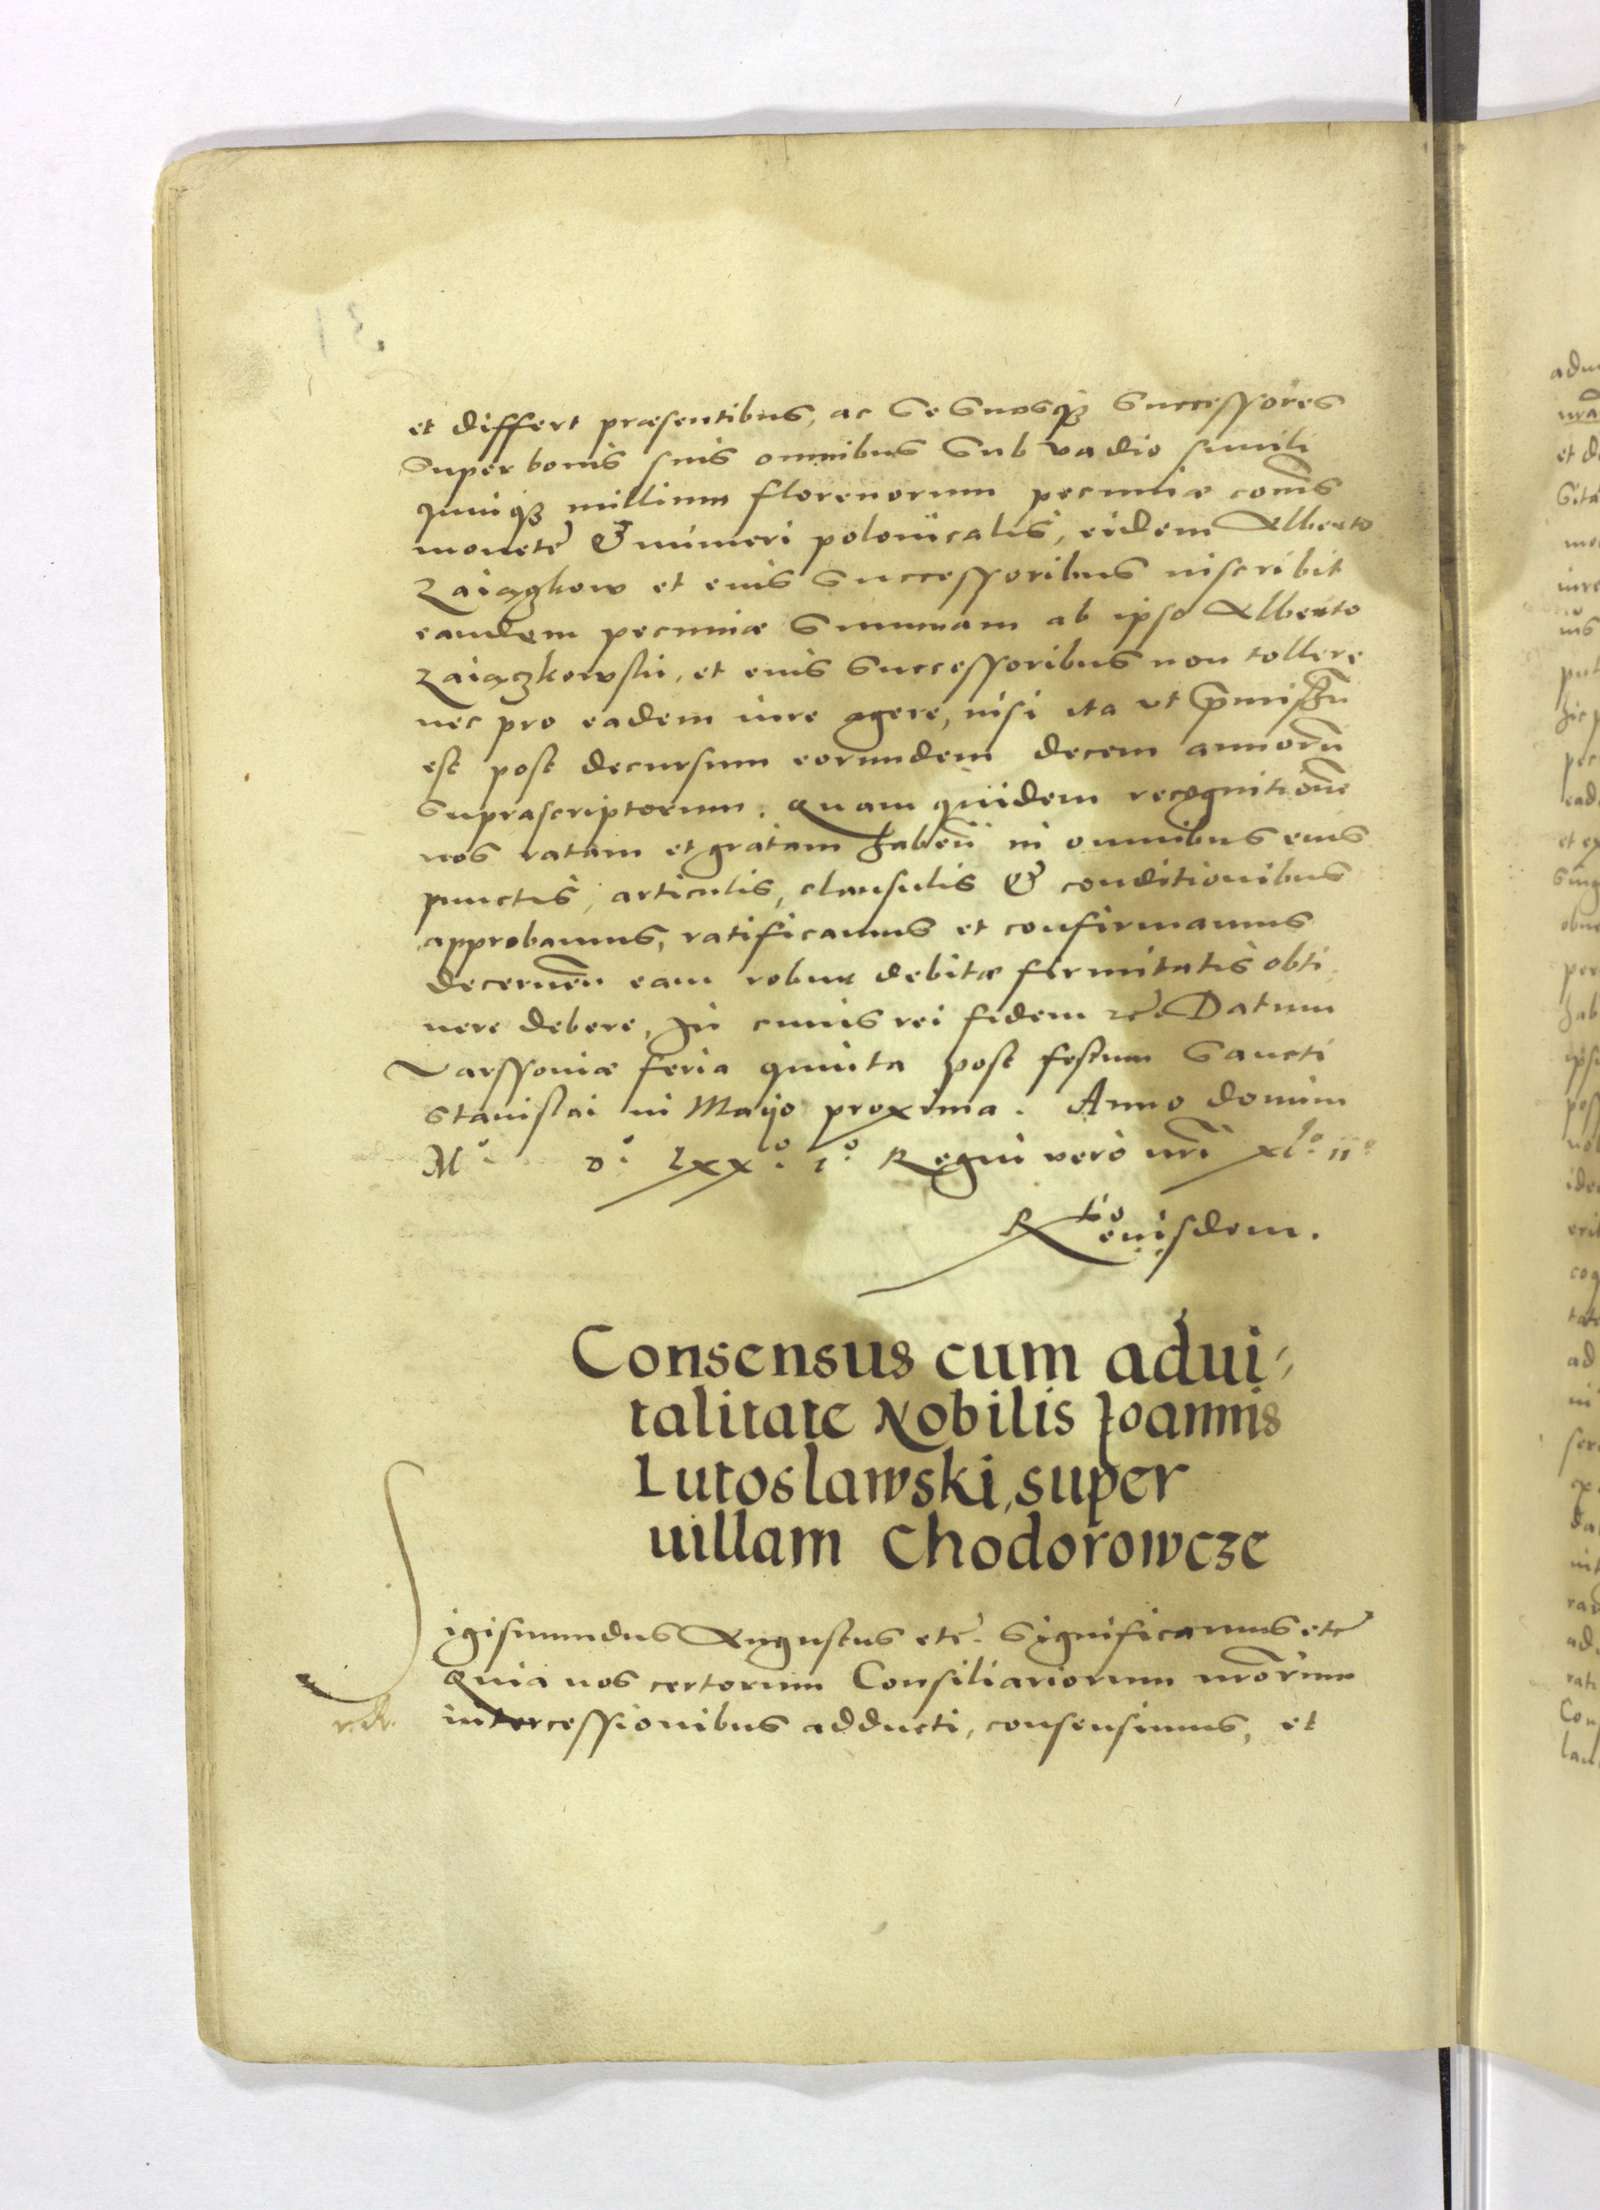 et differt præsentibus, ac se suosqȝ successores
super bonis suis omnibus sub vadio simili
quinqȝ millium florenorum pecuniæ com̃is
monete &numeri polonicalis, eidem Alberto
Zaiączkow et eius successoribus inscribit
eandem pecuniæ summam ab ipso Alberto
Zaiączkowski, et eius successoribus non tollere
nec pro eadem iure agere, nisi ita vt p̃missũ
est post decursum eorundem decem annorũ
suprascriptorum. Quam quidem recognitionẽ
nos ratam et gratam habeñ in omnibus eius
punctis, articulis, clausulis & conditionibus
approbamus, ratificamus et confirmamus
decerneñ eam robur debitæ firmitatis obti
nere debere, In cuius rei fidem etc. Datum
Varssoviæ feria quinta post festum Sancti
Stanislai in Maijo proxima. Anno domini
Mº. Dº. lxxº. iº. Regni vero nr̃i xlº. iiº
Rtio eiusdem.
Consensus cum adui-
talitate Nobilis Joannis
Lutoslawski, super
uillam Chodorowcze
Sigismundus Augustus etc. Significamus etc
Quia nos certorum Consiliariorum nr̃orum
r. R. intercessionibus adducti, consensimus, et